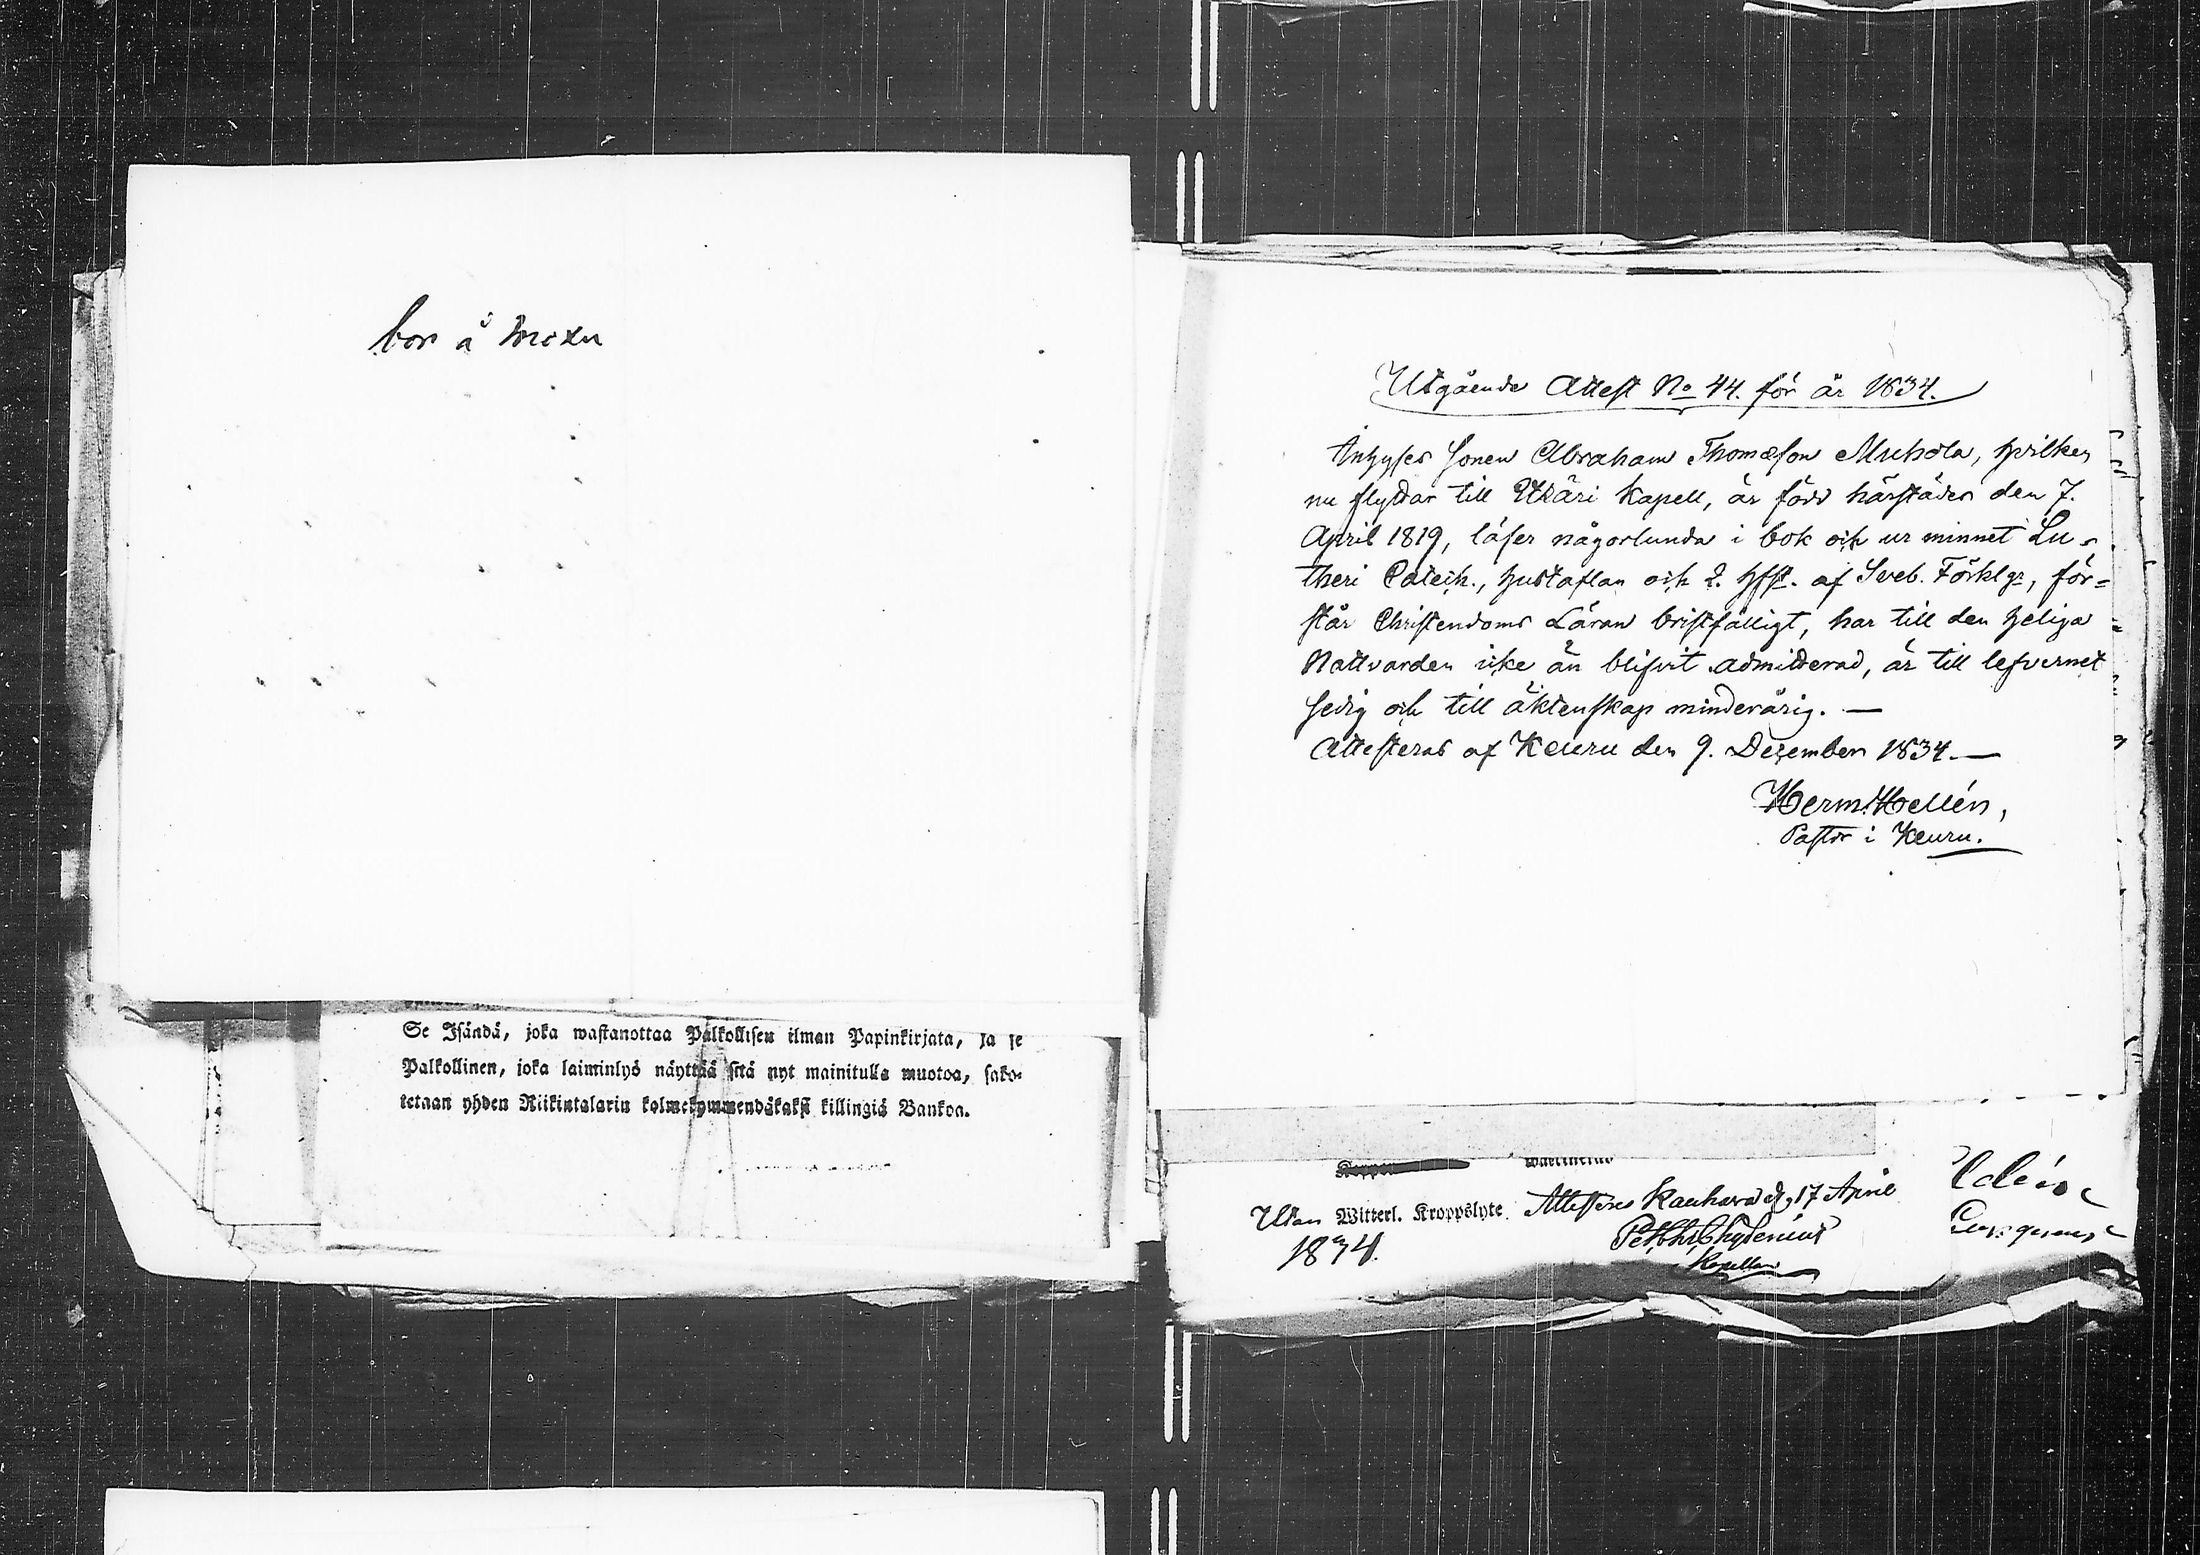 bor å
Se Isändä, joka wastanottaa Palkollisen ilman Papinkirjata, ja se
Palkollinen, joka laiminlyö näyttää sitä nyt mainitulla muotoa, sako-
tetaan yhden Riikintalarin kolmekymmendäkaksi killingiä Bankoa.
Utgående Attest No 44. för år 1834.
Inhyses Sonen Abraham Thomæson Muhola, hvilken
nu flyttar till Etsäri Kapell, är född härstädes den 7.
April 1819, läser någorlunda i bok och ur minnet Lu-
theri Catech., hustaflan och 2. Hfst. af Sveb. Förklgr, för=
står Christendoms Läran bristfälligt, har till den heliga
Nattvarden icke än blifvit admitterad, är till lefvernet
sedig och till äktenskap minderårig. —
Attesteras af Keuru den 9. December 1834. —
Herm. Hellén,
Pastor i Keuru.
Utan Witterl. Kroppslyte. Attesteres Kauhava d. 17 April
1834.
Chydenius
Kapellan